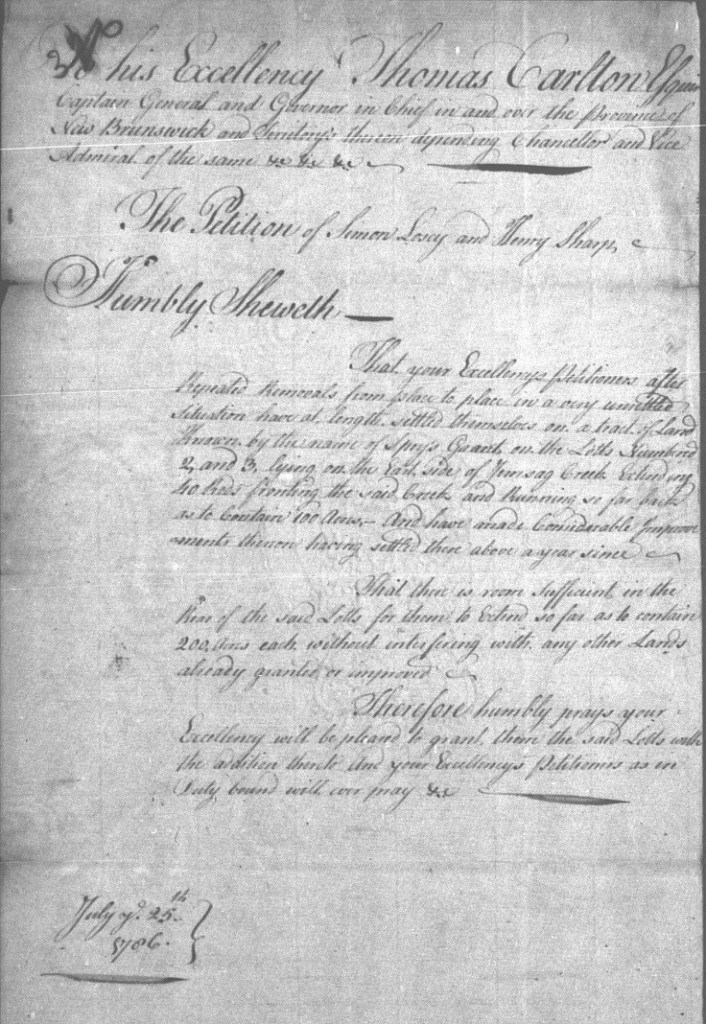 To his Excellency Thomas Carlton Esquire
Captain General and Governor in Chief in and over the Province of
New Brunswick and Territory's thereon depending Chancellor and Vice
Admiral of the same &c &c &c
The Petition of Simon Losey and Henry Sharp,
Humbly Sheweth
That your Excellencys Petitioners after
Repeated Removals from place to place in a very unsettled
Situation have at length settled themselves on a tract of Land
Known by the name of Sprys Grant, on the Lotts Numbered
2, and 3, lying on the East side of Jemsag Creek Extending
40 Rods fronting the said Creek and Running so far back
as to Contain 100 Acres,- And have made Considerable Improve
ments thereon having settled there above a year since
That there is room sufficient in the
Rear of the said Lotts for them to Extend so far as to contain
200, Acres each, without interfering with, any other Lands
already granted or improved
Therefore humbly prays your
Excellency will be pleased to grant, them the said Lotts with
the addition thereto And your Excellencys Petitioners as in
Duty bound will ever pray &c
July ye. 25th
1786.